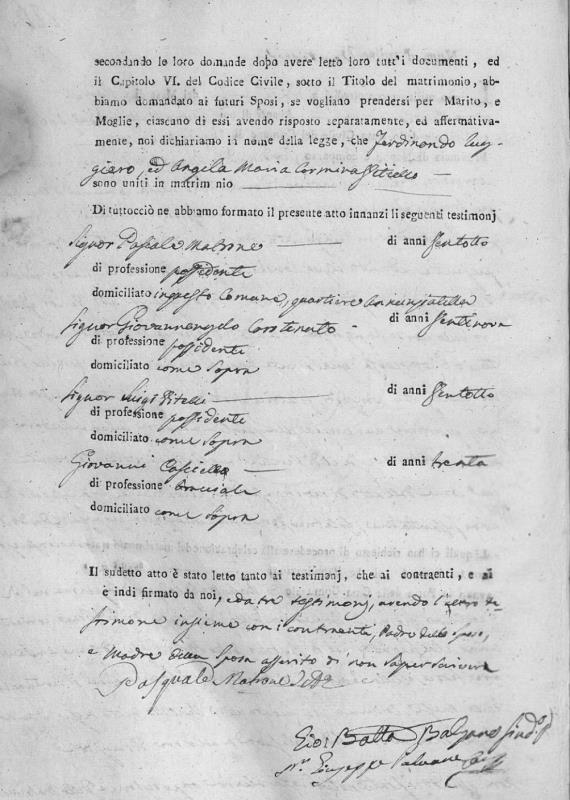 secondando le loro domande dopo avere letto loro tutt'i documenti, ed
il Capitolo VI. del Codice Civile, sotto il Titolo del matrimonio, ab-
biamo domandato ai futuri Sposi, se vogliano prendersi per Marito, e
Moglie, ciascuno di essi avendo risposto separatamente, ed affermativa-
mente, noi dichiariamo in nome della legge, che Ferdinando Rug-
giero, ed Angela Maria Carmina Vitiello
sono uniti in matrim nio
Di tuttociò ne abbiamo formato il presente atto innanzi li seguenti testimonj
Signor Pascale Matrone di anni
di professione possidente
domiciliato in questo Comune, quartiere Annunziatella
Signor Giovannangelo di anni
di professione possidente
domiciliato come sopra
Signor Luigi Vitelli di anni
di professione possidente
domiciliato come sopra
Giovanni Casciello di anni trenta
di professione bracciale
domiciliato come sopra
Il sudetto atto è stato letto tanto ai testimonj, che ai contraenti, e
è indi firmato da noi, e da tre testimonj, avendo l'altro te-
stimone insieme con i contraenti, Padre dello sposo,
e Madre della sposa asserito di non saper scrivere
Pasquale Matrone
Gio: Batta Balzano Sind.o
Giuseppe